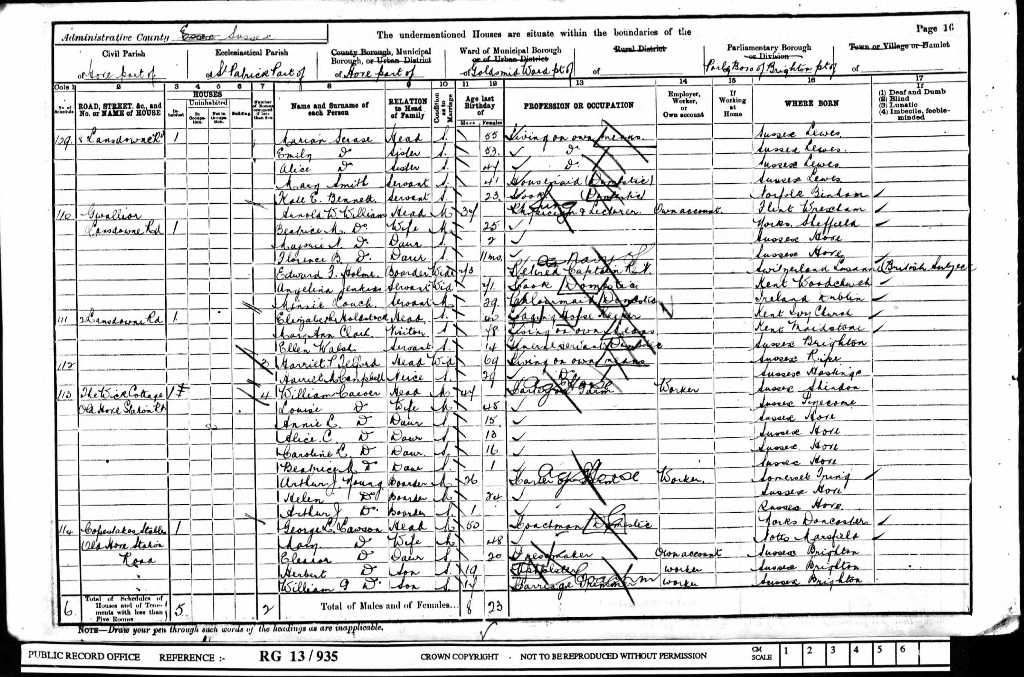 Page 16
Administrative County Essex Sussex
The undermentioned Houses are situate within the boundaries of the
Civil Parish
of Hove part of
Ecclesiastical Parish
of St Patrick Part of
County Borough, Municipal Borough, or Urban District
of Hove part of
Ward of Municipal Borough or of Urban District
of Goldsmid Ward pt of
Rural District
of
Parliamentary Borough or Division
of Brighton pt of
Town or Village or Hamlet
of
Cols 1 2 3 4 5 6 7 8 9 10 11 12 13 14 15 16 17
No. of Schedule
ROAD, STREET, &c., and No. or NAME of HOUSE
HOUSES
Inhabited
Uninhabited
In Occupation
Not in Occupation
Building
Name and Surname of each Person
RELATION to Head of Family
Condition as to Marriage
Age last Birthday of
Males Females
PROFESSION OR OCCUPATION
Employer, Worker, or Own account
If Working at Home
WHERE BORN
If (1) Deaf and Dumb (2) Blind (3) Lunatic (4) Imbecile, feeble-minded
109 8 Lansdowne Rd 1 Marian Head S. 55 Living on own means Sussex Lewes
Emily Do Sister S. 53 Do Sussex Lewes
Alice Do Sister S. 47 Do Sussex Lewes
Mary Smith Servant S. 41 Housemaid (Domestic) Sussex Lewes
Kate E. Bennett Servant S. 23 Cook (Domestic) Norfolk Binham
110 Gwalior Arnold W. Williams Head M 34 Physician & Own account Flint Wrexham
Lansdowne Rd 1 Beatrice M. Do Wife M 25 Yorks. Sheffield
Marjorie N. Do Daur S. 2 Sussex Hove
Florence B. Do Daur S. 11 mo. Sussex Hove
Edward F. Holme Boarder Widr 73 Retired Captain R.N. Switzerland British Subject
Angelina Jenkins Servant Wid 41 Cook (Domestic) Kent Woodchurch
Minnie Servant 29 (Domestic) Ireland Dublin
111 2 Lansdowne Rd 1 Elizabeth Head S. Lodging House Keeper Kent Ivychurch
Mary Ann Visitor S. 78 Living on own means Kent Maidstone
Ellen Walsh Servant S. 14 General servant Domestic Sussex Brighton
112 2 Harriet P. Telford Head Wid 69 Living on own means Sussex Ripe
Harriet M. Campbell Niece S. 29 Do Sussex Hastings
113 The Wick Cottage 1 4 William Carver Head M 47 Carter on Farm Worker Sussex
Old Hove Station Rd Louise Do Wife M 45 Sussex
Annie E. Do Daur S. 15 Sussex Hove
Alice C. Do Daur S. 13 Sussex Hove
Caroline L. Do Daur S. 16 Sussex Hove
Beatrice M. Do Daur S. 1 Sussex Hove
Arthur J. Young Boarder M 26 Carter Worker Somerset
Helen Do Boarder M 24 Sussex Hove
Arthur J. Do Boarder S. 1 Sussex Hove
114 Copestakes Stables 1 George L. Lawson Head M 50 Coachman (Domestic) Yorks Doncaster
Old Hove Station Mary Do Wife M 48 Notts
Road Eleanor Do Daur S. 20 Dressmaker Own account Sussex Brighton
Herbert Do Son S. 19 worker Sussex Brighton
William G Do Son S. 17 Carriage worker Sussex Brighton
6 Total of Schedules of Houses and of Tenements with less than Five Rooms 5 2 Total of Males and of Females... 8 23
NOTE—Draw your pen through such words of the headings as are inapplicable.
PUBLIC RECORD OFFICE REFERENCE :- RG 13/935 CROWN COPYRIGHT - NOT TO BE REPRODUCED WITHOUT PERMISSION CM SCALE 1 2 3 4 5 6